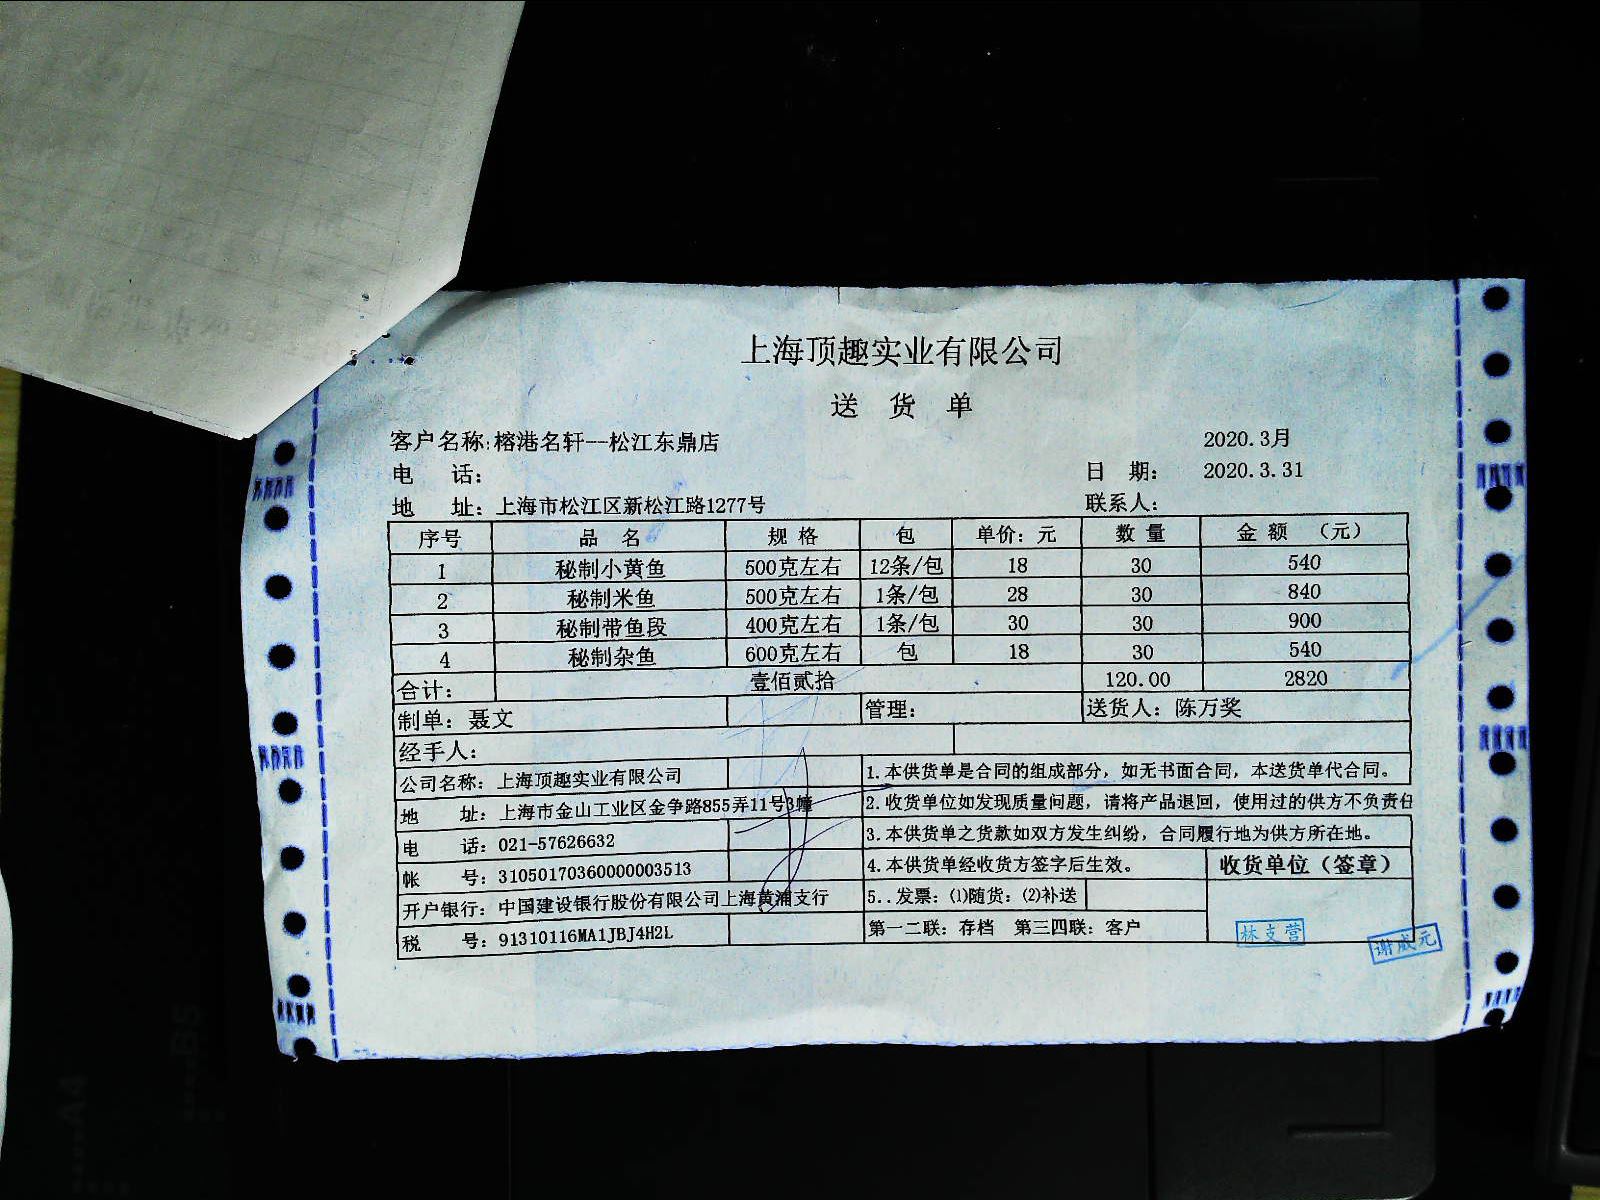 上海顶趣实业有限公司
送 货 单
客户名称:榕港名轩--松江东鼎店 2020.3月
电 话: 日 期: 2020.3.31
地 址: 上海市松江区新松江路1277号 联系人:
序号 品 名 规 格 包 单价: 元 数 量 金 额 (元)
1 秘制小黄鱼 500克左右 12条/包 18 30 540
2 秘制米鱼 500克左右 1条/包 28 30 840
3 秘制带鱼段 400克左右 1条/包 30 30 900
4 秘制杂鱼 600克左右 包 18 30 540
合计: 壹佰贰拾 120.00 2820
制单: 聂文 管理: 送货人: 陈万奖
经手人:
公司名称: 上海顶趣实业有限公司 1.本供货单是合同的组成部分, 如无书面合同, 本送货单代合同。
地 址: 上海市金山工业区金争路855弄11号3幢 2.收货单位如发现质量问题, 请将产品退回, 使用过的供方不负责任
电 话: 021-57626632 3.本供货单之货款如双方发生纠纷, 合同履行地为供方所在地。
帐 号: 31050170360000003513 4.本供货单经收货方签字后生效。 收货单位 (签章)
开户银行: 中国建设银行股份有限公司上海黄浦支行 5..发票: ⑴随货: ⑵补送
税 号: 91310116MA1JBJ4H2L 第一二联: 存档 第三四联: 客户
林支营
A4
B5